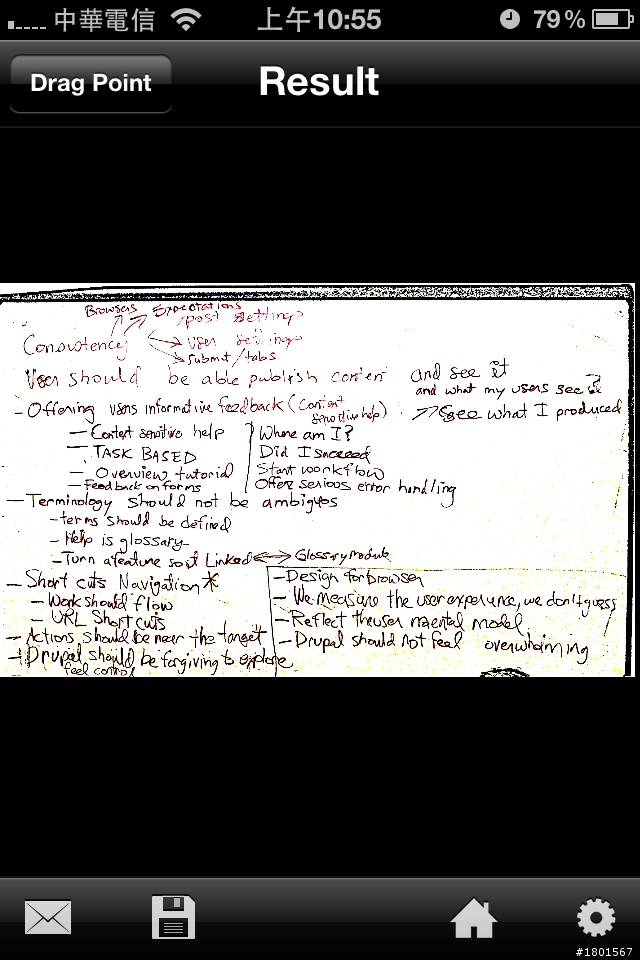 中華電信 上午10:55 79%
Drag Point Result
Browsers Expectations
/post settings
Consistency user settings
submit/tabs
User should be able publish content and see it
and what my users see it?
- Offering users informative feedback (Content sensitive help) see what I produced
- Context sensitive help Where am I?
- TASK BASED Did I succeed
- Overview tutorial Start workflow
- Feedback on forms Offer serious error handling
- Terminology should not be ambigous
- terms should be defined
- Help is glossary
- Turn a feature so it Linked Glossary module
- Short cuts Navigation* - Design for browser
- Work should flow - We measure the user experience, we don't guess
- URL Short cuts - Reflect the user mental model
- Actions should be near the target - Drupal should not feel overwhelming
- Drupal should be forgiving to explore
feel control
#1801567